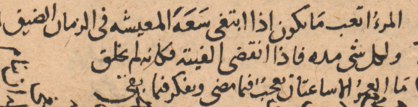 المرء اتعب ما يكون اذا ابتغى سعة المعيشة فى الزمان الضيق
ولكل شى مده فاذا انقضى الفيته فكانه لم يخلق
ما العمر الا ساعتان تعجب فيما مضى وتفكر فيما بقى